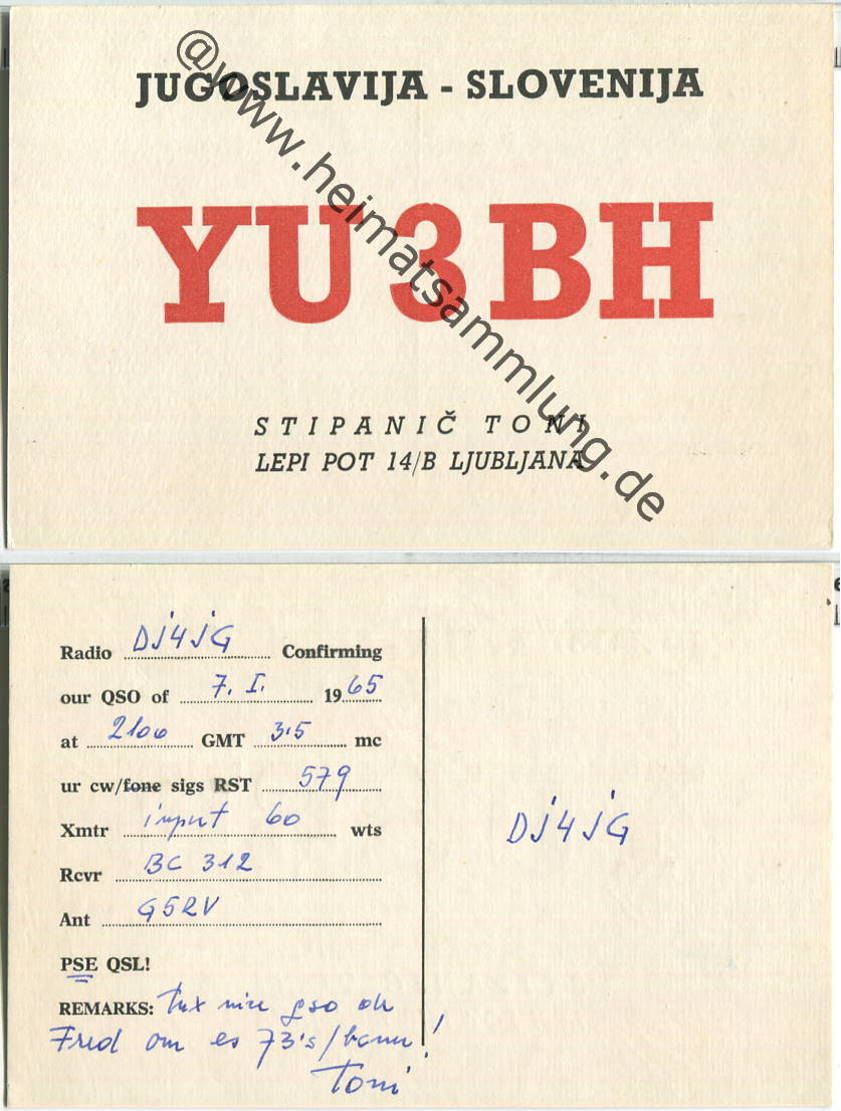 JUGOSLAVIJA - SLOVENIJA
YU3BH
STIPANIČ TONI
LEPI POT 14/B LJUBLJANA
@www.heimatsammlung.de
Radio DJ4JG Confirming
our QSO of 7. I. 1965
at 2100 GMT 3.5 mc
ur cw/fone sigs RST 579
Xmtr input 60 wts
Rcvr BC 312
Ant G5RV
PSE QSL!
REMARKS: Tnx nice qso dr
Fred om es 73's /
Toni
DJ4JG